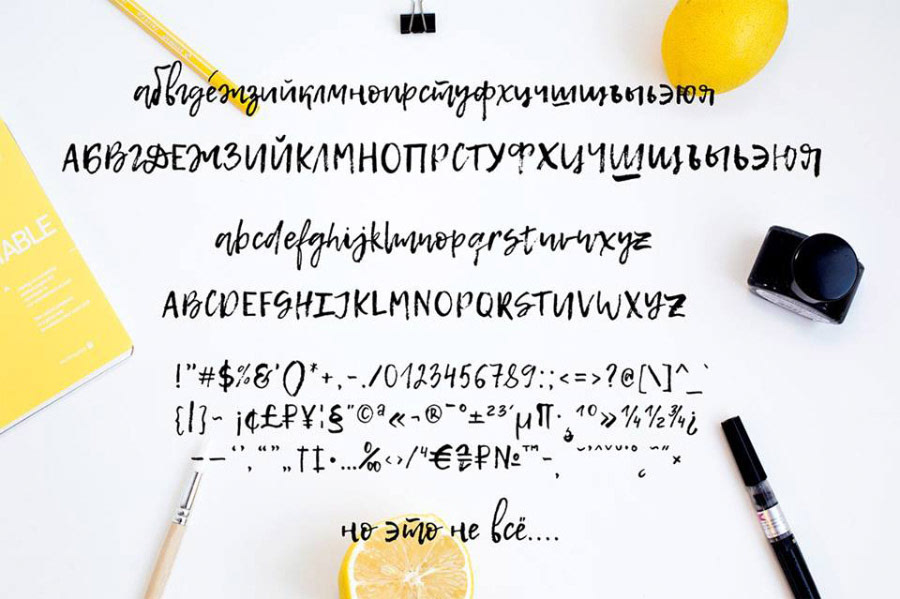 абвгдéжзийклмнопрстуфхцчшщъыьэюя
АБВГДЕЖЗИЙКЛМНОПРСТУФХЦЧШЩЪЫЬЭЮЯ
TABLE
abcdefghijklmnopqrstuvwxyz
ABCDEFGHIJKLMNOPQRSTUVWXYZ
!"#$%&'()*+,-./0123456789:;<=>?@[\]^_`
{|}~ ¡¢£₽¥¦§¨©ª«¬®¯°±²³´µ¶·¸¹º»¼½¾¿
–—‘’‚“”„†‡•…‰‹›/⁴€₴₽№™−
но это не всё....